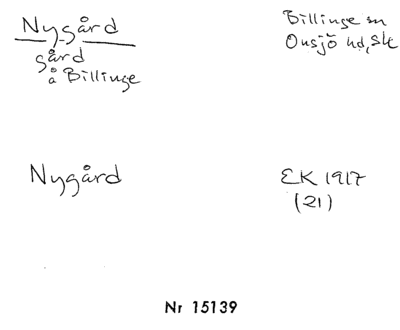 Nygård
gård
å Billinge
Billinge sn
Onsjö hd, Sk
Nygård
EK 1917
(21)
Nr 15139